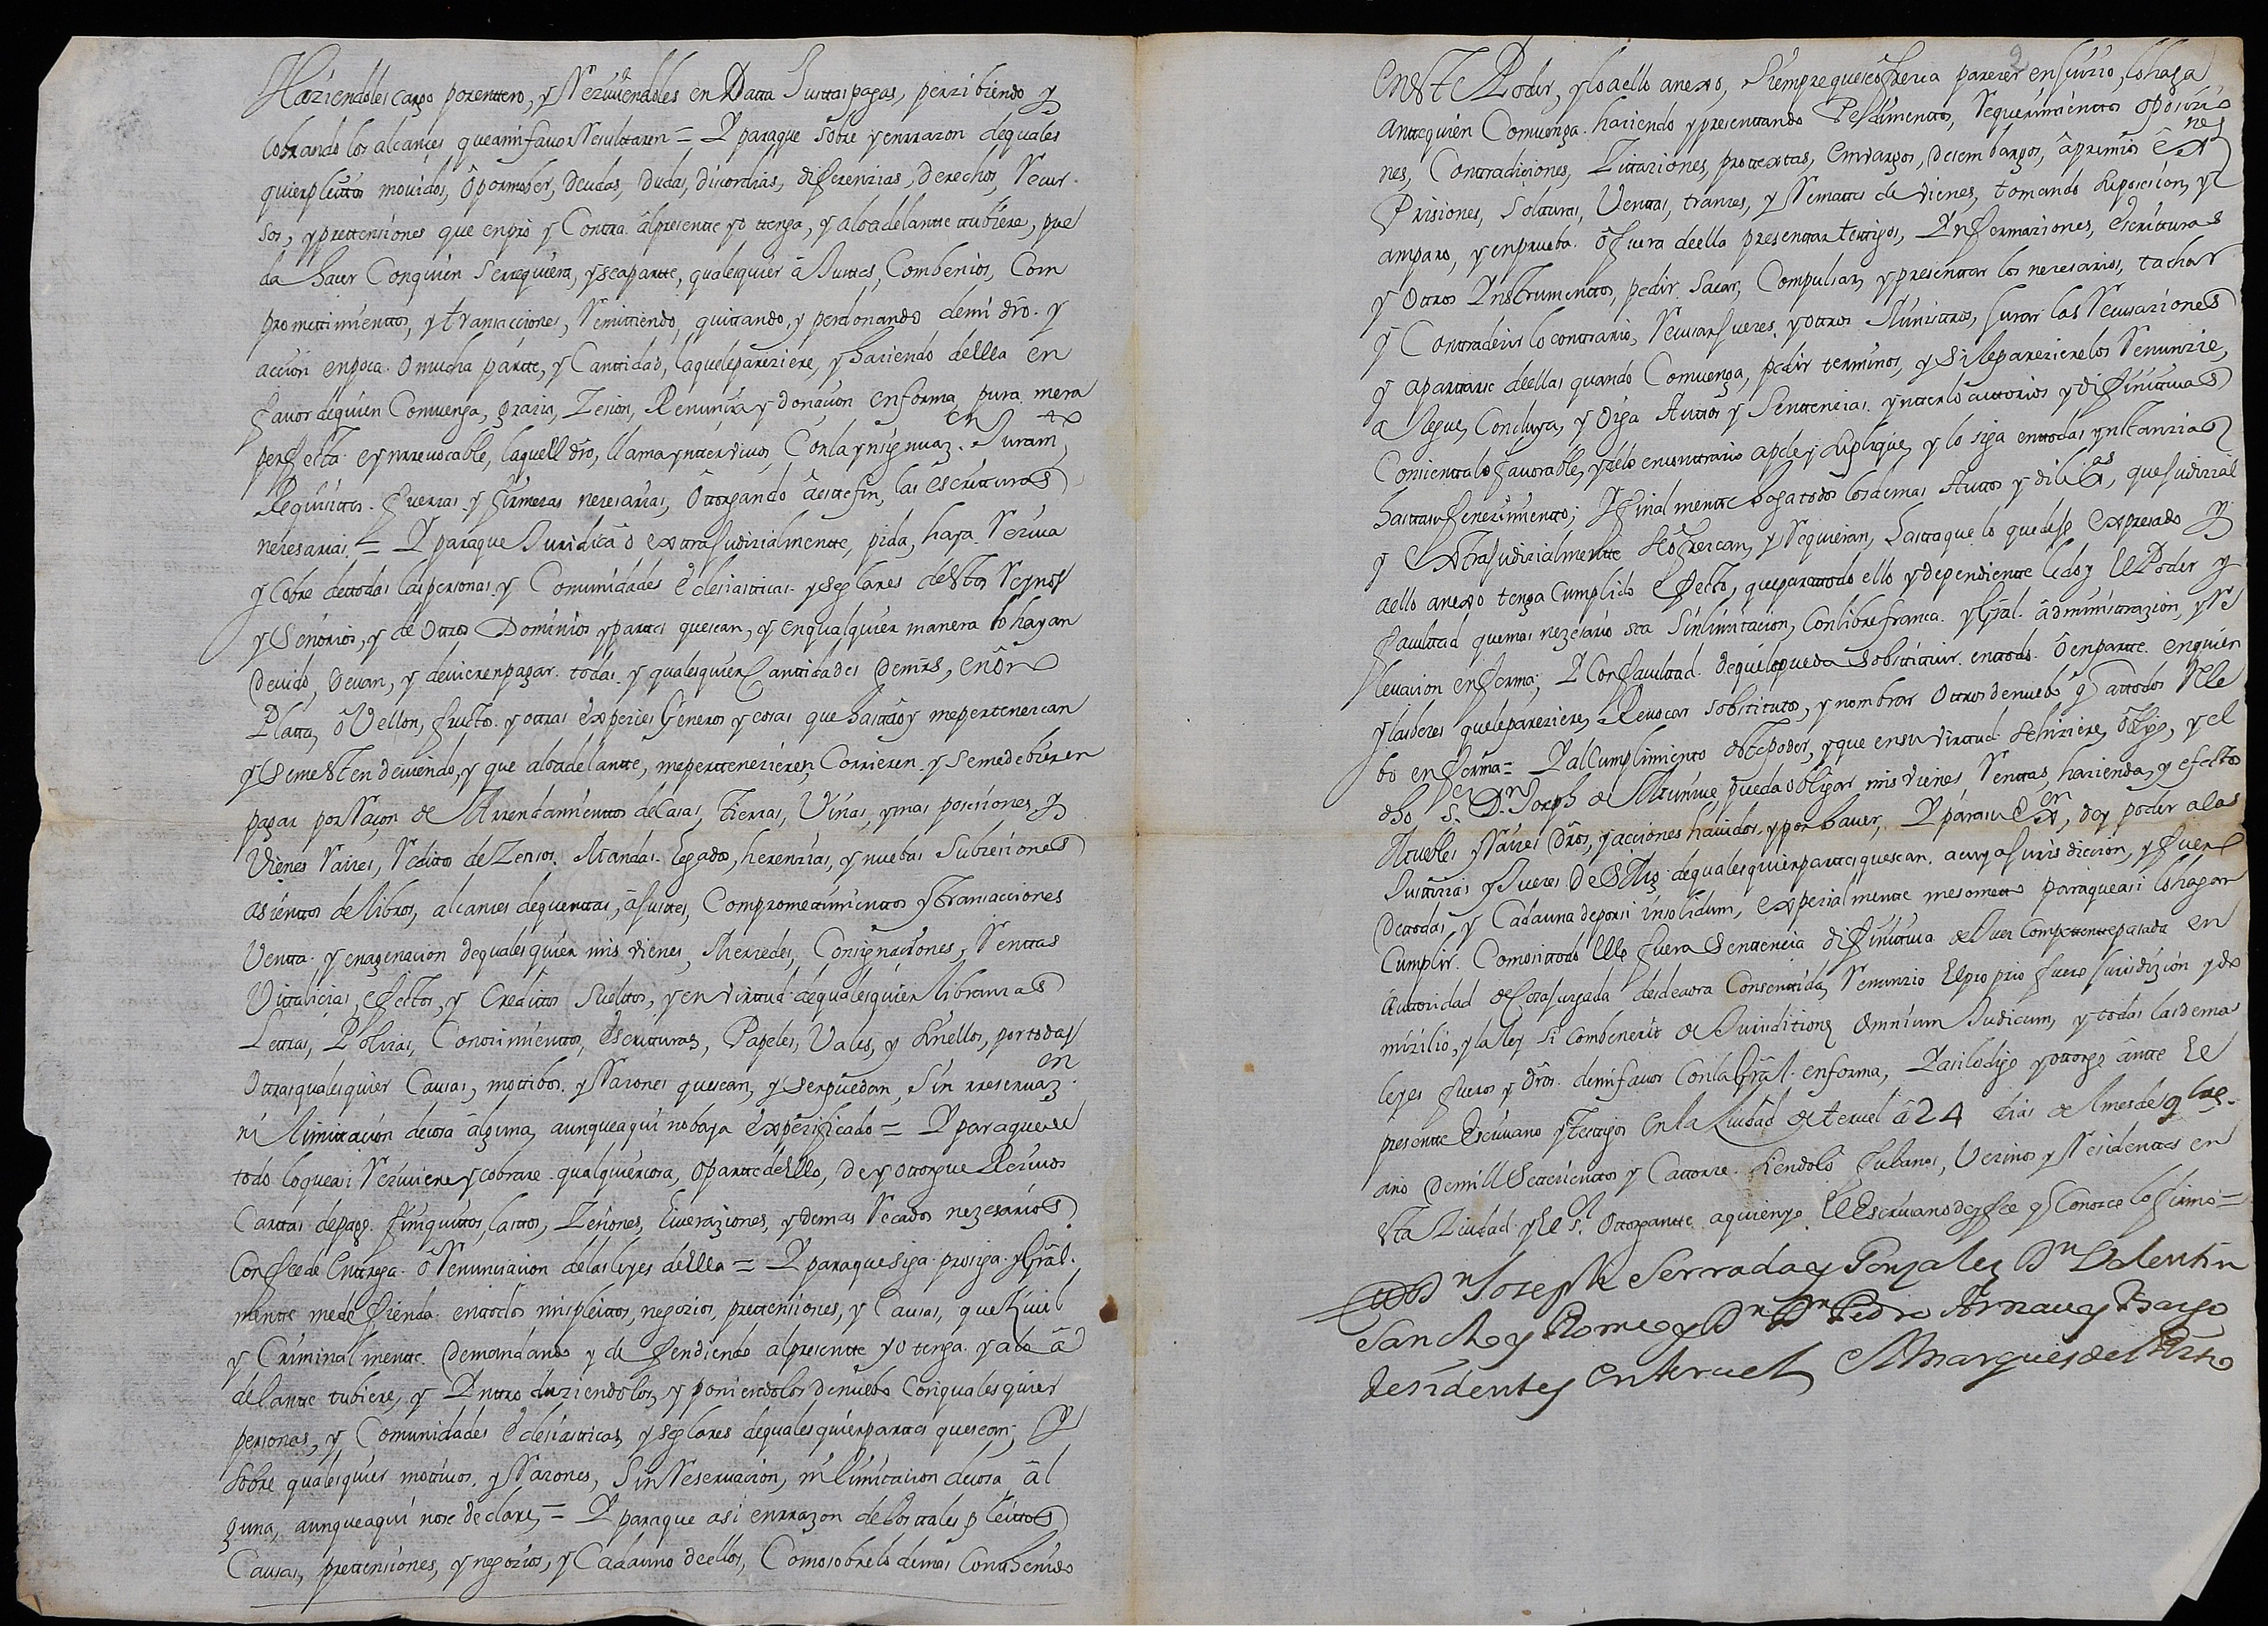 Haziendoles cargo porenttero, y Rezuiendoles en Datta Justtas pagas, perzibiendo y
Cobrando los alcanzes queamifavor Resulttaren = Y paraque sobre yenrrazon dequales
quierpleittos movidos, ô pormober, Deudas, Dudas, discordias, diferenzias, derechos, Recur
sos, yprettensiones que enpro y Contra âlpresentte yo ttenga, y aloadelantte ttubiere, pue
da hacer Conquien Serrequiera, yseapartte, qualesquier âJusttes, Combenios, Com
promettimienttos, y transacciones, Remittiendo, quittando, y perdonando demi dro. y
accion enpoca o mucha partte, y Canttidad, laquelepareziere, y haziendo dellla en
favor dequien Comuenga, grazia, Zesion, Renunzia y donacion enforma, pura, mera
perfecta eynrrevocable, laquell dro, llama ynttervivos, Conla ynsignuazon. Juramto,
Requisittos fuerzas y firmezas nezesarias, Ottorgando âestte fin, las escritturas
nezesarias = Y paraque Juridica ô exttraJudizialmentte, pida, haya Reziva
y Cobre dettodas laspersonas, y Comunidades eclesiasticas y seglares desttos Reynos
y Señorios, y de Ottros Dominios yparttes quesean, y enqualquier manera lo hayan
Devido, Devan, y devierenpagar todas y qualesquier Canttidades demrs, enôro
Platta, ô Vellon, fructos y ottras expecies Generos y cosas que hastta oy mepertenezcan
y Semestten deviendo, y que aloadelantte, meperttenezieren, Corrieren y Semedebieren
pagar porRaçon de Arrendamienttos de Casas, Tierras, Viñas, ymas posesiones, y
Vienes Raizes, Reditos de Zensos Mandas Legados, herenzias, y nuebas Subzesiones
asienttos de libros, alcanzes dequenttas, âJusttes, Compromettimienttos yttransacciones
Ventta y enagenacion dequalesquier mis vienes, Merzedes, Consignaciones, Renttas
Vittalicias, efectos, y Credittos Suelttos, y en virttud dequalesquier libranzas
Lettras, Polizas, Conozimienttos, Escritturas, Papeles, Vales, y Sinellos, portodas
Ottrasqualesquier Causas, mottibos y Razones quesean, y Serpuedan, sin rreservazon
ni limittacion decosa âlguna, aunqueaqui nobaya expezificado = Y paraquede
todo loqueasi Reziviere y cobrare qualquiercosa, ô parttedello, De y Ottorgue Rezivos
Carttas depago finiquittos, lasttos, Zesiones, liverazones, ydemas Recados nezesarios
Con feede Enttrega ô Renunciacion delasleyes dellla = Y paraquesiga prosiga y Gral.
mentte mede fienda enttodos mispleittos, negozios, prettensiones, y Causas, que Zivil
y Criminalmentte Demandando y de fendiendo alpresentte yo tenga y alo â
delantte tubiere, y Ynttro duziendolos, y poniendolos denuebo Conqualesquier
personas, y Comunidades eclesiasticas, y seglares dequalesquierparttes quesean; Y
Sobre qualesquier mottivos y Razones, Sin Reservacion, ni limitacion decosa âl
guna, aunqueaqui nose declare, = Y paraque asi enrrazon delos ttales pleittos
Causas, prettensiones, y negozios, y Cadauno deellos, Como sobrelo demas Conthenido
Eneste Poder, yloaello anexo, Siempre que se ofrezca parezer enJuizio, lo haga
2
anttequien Comuenga haziendo ypresenttando Pedimenttos, Requerimienttos Oposizio
nes, Conttradiciones, Zittaziones, prottextas, Emvargos, Desembargos, âpremios exnes
Prisiones, Solturas, Venttas, tranzes, y Remattes de vienes, tomando suposesion, y
amparo, y enprueba ô fuera deella presenttar testtigos, Ynformaziones, escritturas
y Ottros Ynstrumenttos, pedir Sacar, Compulsar, ypresenttar los nezesarios, tachar
y Conttradezir lo conttrario, Recusar Juezes yottros Ministtros, Jurar las Recusaziones
y aparttarse deellas quando Comuenga, pedir terminos, y Si lepareziere los Renunzie,
alegue, Concluya, y Oiga Auttos y Senttencias ynterlocuttorios y difinittivas
Consientta lo favorable, ydelo enconttrario apele y Supligue, y lo siga enttodas ynstanzias
hasttasu fenezimientto; Y finalmentte haga todos losdemas Auttos y dilixas, queJudizial
y ExtraJudizialmentte se ofrezcan, y Requieran, hastta que lo que dejo expresado y
aello anexo tenga Cumplido efecto, queparattodo ello y dependiente ledoy el Poder y
facultad quemas nezesario sea Sinlimitacion, Conlibrefranca y Gral. administtrazion, y Re
levacion enforma; Y Confacultad dequelopueda Sobstituir enttodo ô enpartte enquien
y lasbezes quelepareziere, Revocar Sobstitutos, y nombrar Ottros denuebo q attodos Rele
bo enforma = Y alCumplimiento dEstepoder, yque ensu virtud Sehiziere, Obligo, y el
dho Sor. Dn. Joseph de Munive pueda obligar mis vienes Renttas, hazienda, y efectos
Muebles y Raizes Dros, yacciones havidos, ypor haver, Y parasu exon, doy poder alas
Justtizias y Juezes De S Mg. dequalesquierparttes quesean acuya Jurisdiccion, y fuero
Dettodas y Cadauna deporsi insolidum, expezialmente mesometto paraqueasi lo hagan
Cumplir Comosittodo ello fuera Sentencia difinitiva de Juez Competentepasada en
Auttoridad de CosaJuzgada desdeaora Consenttida, Renunzio el proprio fuero Jurisdizion ydo
mizilio, y la ley Si Combenerit de Jurisditione Omnium Judicum, y todas lasdemas
leyes fueros y dros. demifavor Conla Gral. enforma, Y asilodigo yottorgo antte el
presentte Escrivano ytesttigos Enla Ziudad de teruel â 24 dias de lmes de 9bre.
año Demill Settezienttos y Cattorze Siendolo Jubanos, Vezinos y Residenttes en
Esta Ziudad y el Sr. Ottorgantte aquienyo el Escrivano doyfee q Conozco lo firmo =
Dn Joseph Serrada y Gonzalez Dn Valentin
Sancho y Romeo y Dn Pedro Arnau y Bargo
Residentes en teruel El Marques del